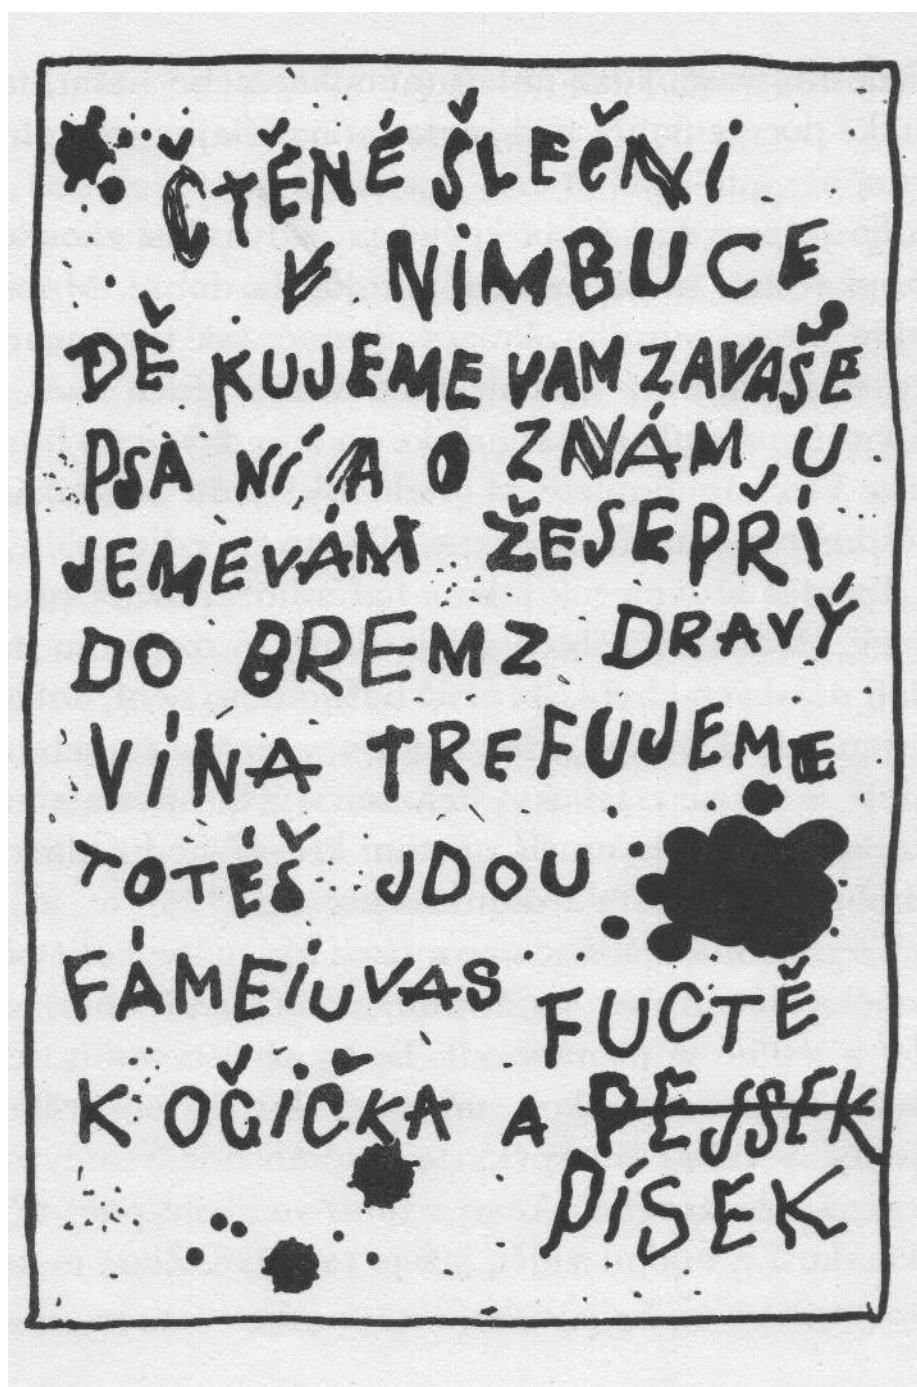 ČTĚNÉ ŠLEČNi
V NIMBUCE
DĚ KUJEME VAM ZAVAŠE
PSA NÍ A O ZNÁM U
JEMEVÁM ŽESEPŘÍ
DO BREMZ DRAVÝ
VÍNA TREFUJEME
TOTÉŠ JDOU
FÁMEIUVAS FUCTĚ
K OČIČKA A PEJSEK
PÍSEK